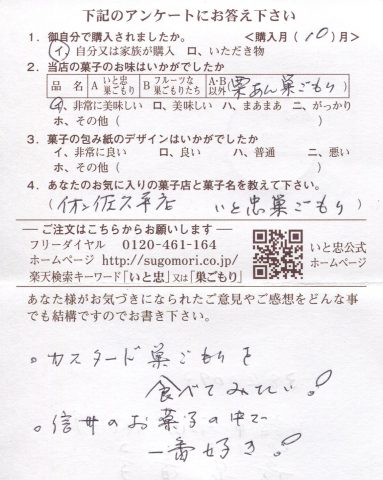 下記のアンケートにお答え下さい
1. 御自分で購入されましたか。 <購入月( 10 )月>
イ、自分又は家族が購入 ロ、いただき物
2. 当店の菓子のお味はいかがでしたか
品 名 A いと忠巣ごもり B フルーツな巣ごもりたち A・B以外 (栗あん巣ごもり)
イ、非常に美味しい ロ、美味しい ハ、まあまあ ニ、がっかり
ホ、その他 ( )
3. 菓子の包み紙のデザインはいかがでしたか
イ、非常に良い ロ、良い ハ、普通 ニ、悪い
ホ、その他 ( )
4. あなたのお気に入りの菓子店と菓子名を教えて下さい。
(イオン佐久平店 いと忠巣ごもり )
ご注文はこちらからお願いします
フリーダイヤル 0120-461-164
ホームページ http://sugomori.co.jp/
楽天検索キーワード「いと忠」又は「巣ごもり」
いと忠公式
ホームページ
あなた様がお気づきになられたご意見やご感想をどんな事
でも結構ですのでお書き下さい。
。カスタード巣ごもりを
食べてみたい!
。信州のお菓子の中で
一番好き!